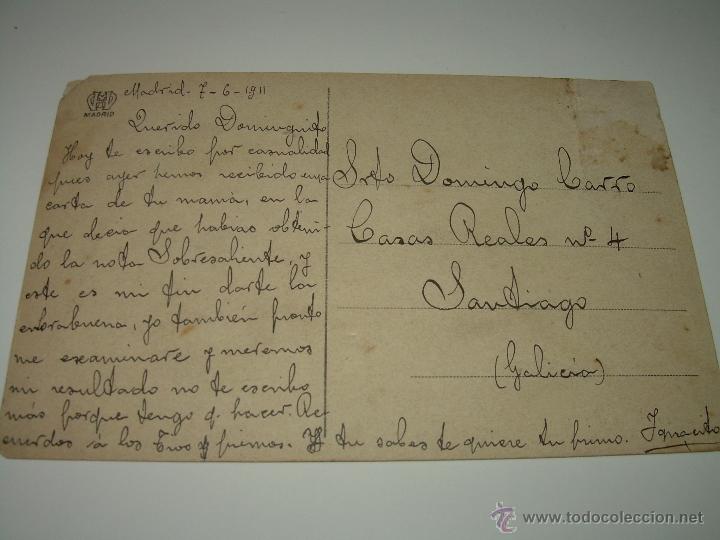 MADRID
Madrid - 7 - 6 - 1911
Querido Dominguito
Hoy te escribo por casualidad
pues ayer hemos recibido una
carta de tu mamá, en la
que decia que habias obteni-
do la nota Sobresaliente, y
este es mi fin darte la
enhrabuena, yo también pronto
me examinare y veremos
mi resultado no te escribo
más porque tengo q. hacer. Re-
cuerdos á los Tios y primos. Y tu sabes te quiere tu primo. Ignacito
Srto Domingo Carro
Casas Reales nº 4
Santiago
(Galicia)
www.todocoleccion.net